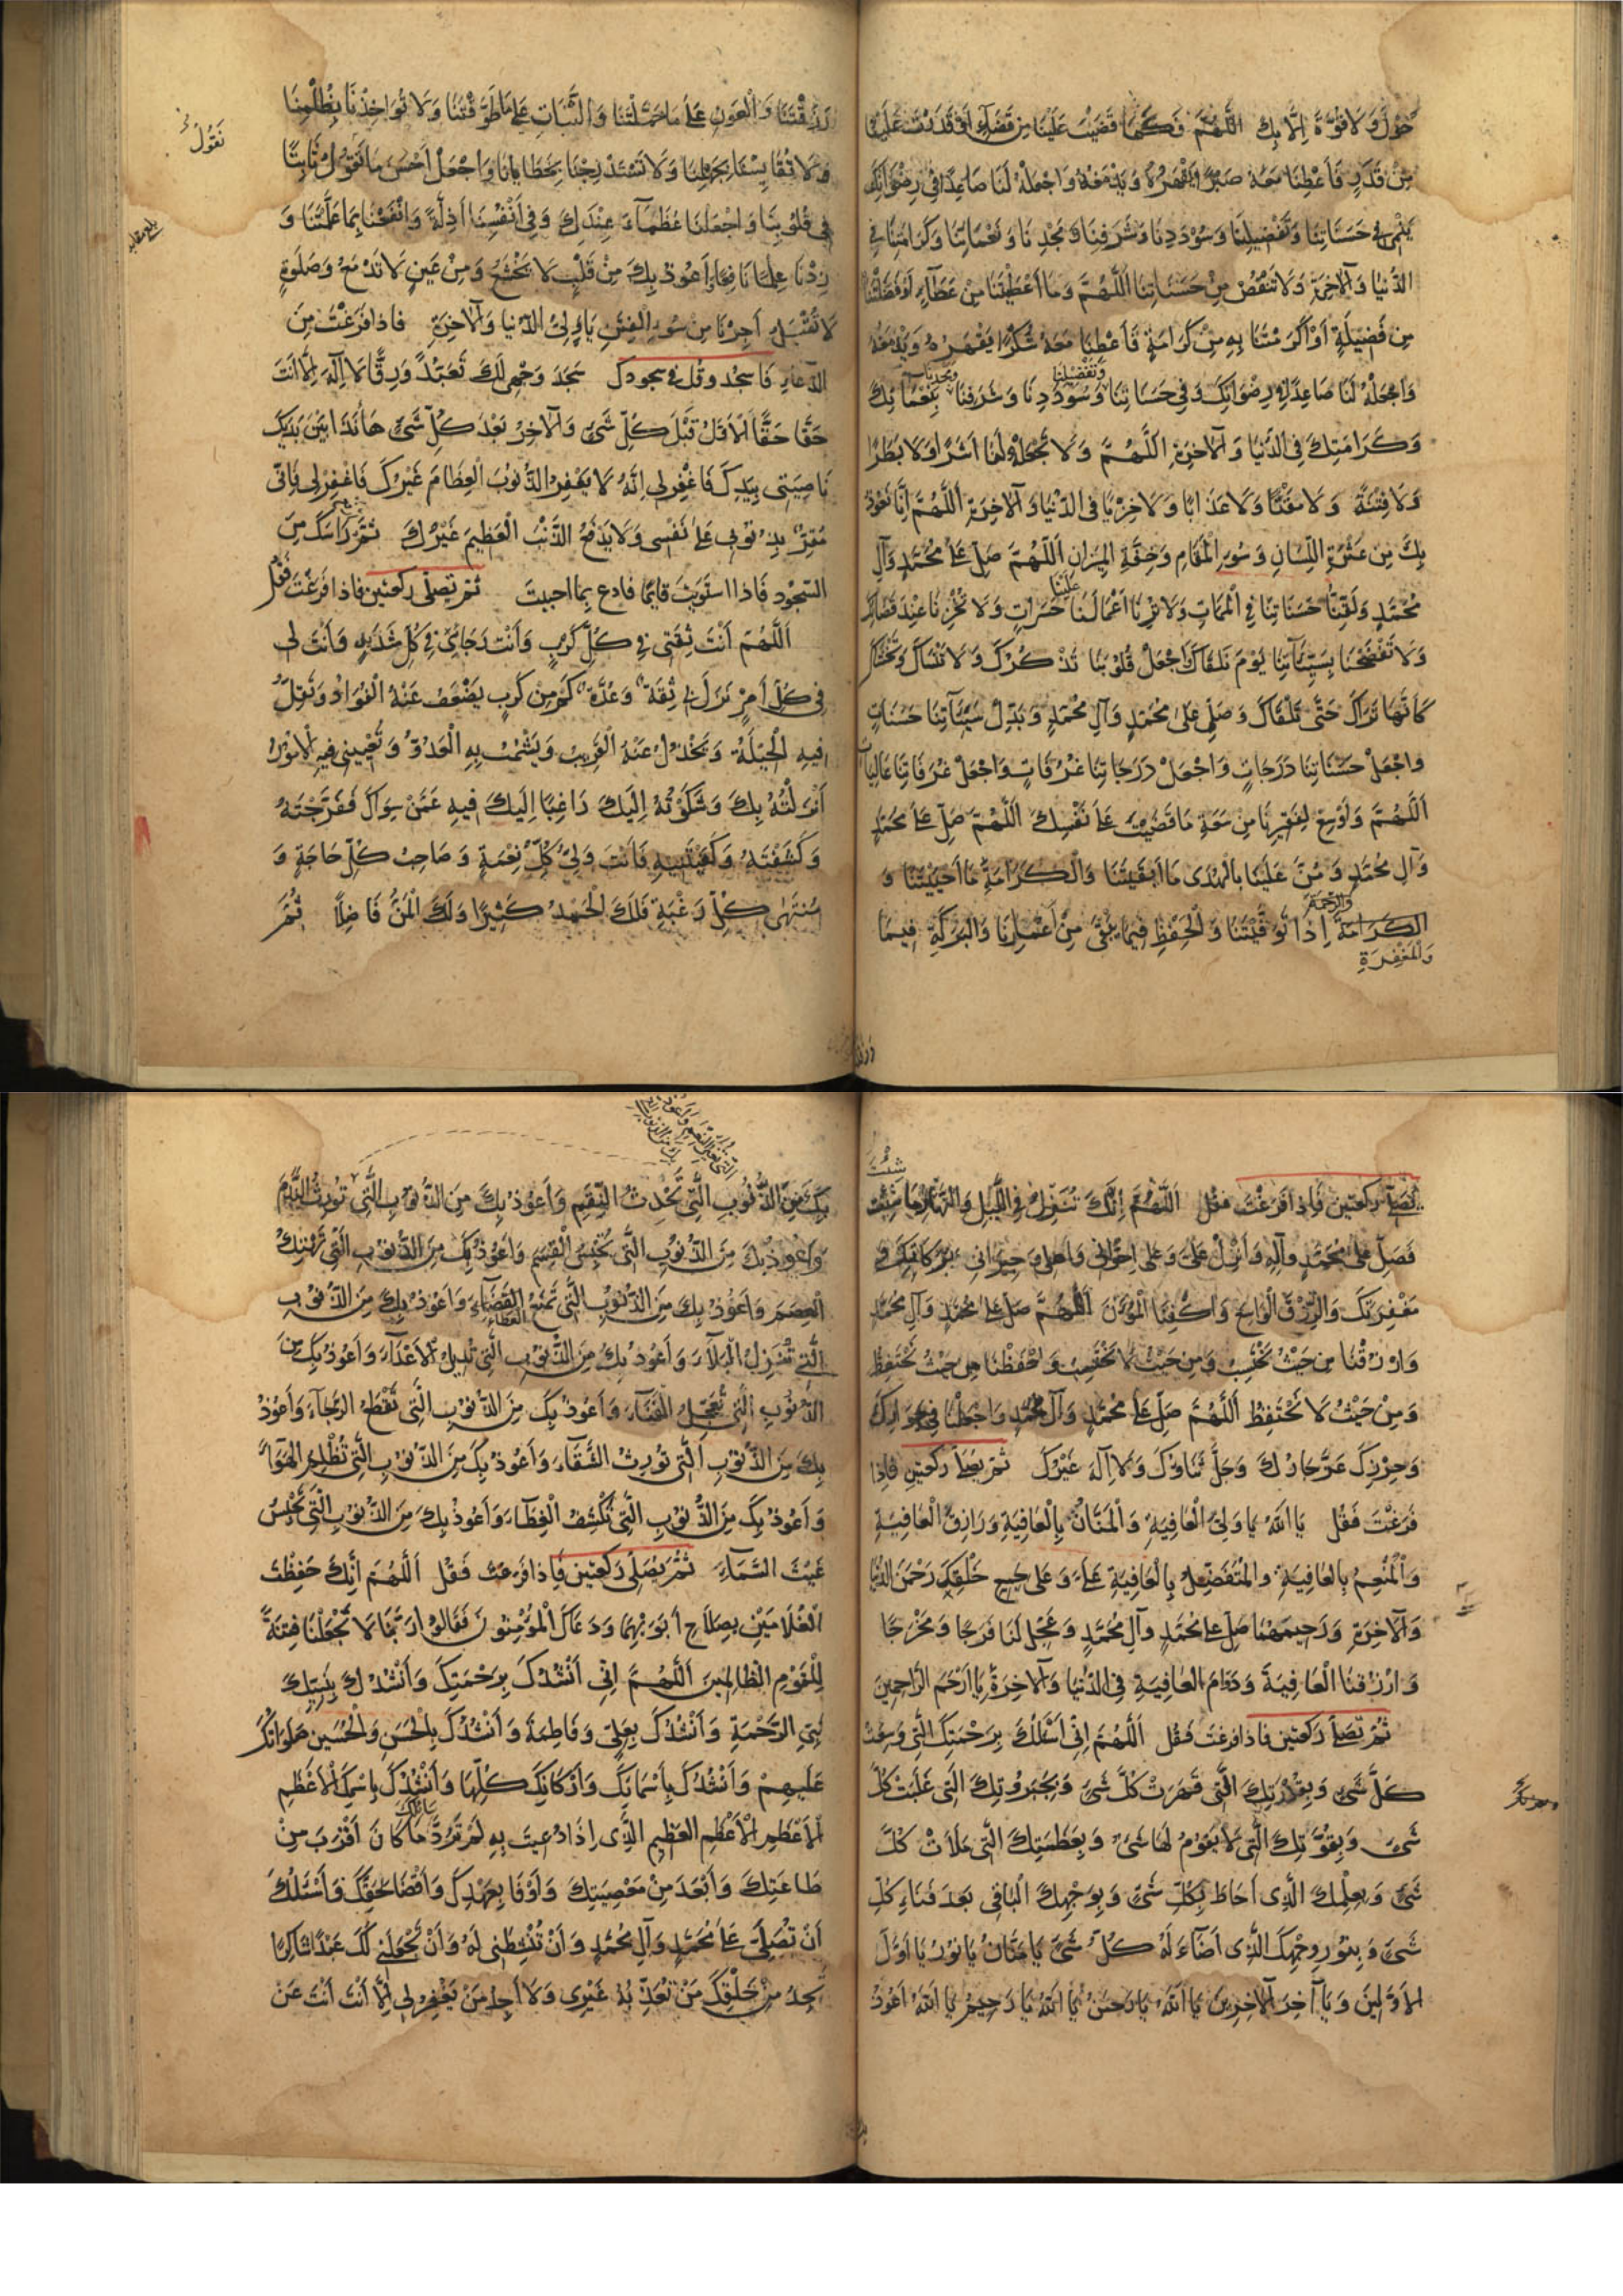 حَوْلَ وَلَا قُوَّةَ إِلَّا بِكَ اللَّهُمَّ فَكَمَا قَضَيْتَ عَلَيْنَا مِنْ قَضَاءٍ أَوْ قَدَّرْتَ عَلَيْنَا
مِنْ قَدَرٍ فَأَعْطِنَا مَعَهُ صَبْرًا يَقْهَرُهُ وَيَدْمَغُهُ وَاجْعَلْهُ لَنَا صَاعِدًا فِي رِضْوَانِكَ
يَنْمِي فِي حَسَنَاتِنَا وَتَفْضِيلِنَا وَسُؤْدَدِنَا وَشَرَفِنَا وَمَجْدِنَا وَنَعْمَائِنَا وَكَرَامَتِنَا فِي
الدُّنْيَا وَالْآخِرَةِ وَلَا تَنْقُصْ مِنْ حَسَنَاتِنَا اللَّهُمَّ وَمَا أَعْطَيْتَنَا مِنْ عَطَاءٍ أَوْ فَضَّلْتَنَا
مِنْ فَضِيلَةٍ أَوْ أَكْرَمْتَنَا بِهِ مِنْ كَرَامَةٍ فَأَعْطِنَا مَعَهُ شُكْرًا يَقْهَرُهُ وَيَدْمَغُهُ
وَتَفْضِيلِنَا وَمَجْدِنَا
وَاجْعَلْهُ لَنَا صَاعِدًا فِي رِضْوَانِكَ وَفِي حَسَنَاتِنَا وَسُؤْدَدِنَا وَشَرَفِنَا وَنَعْمَائِكَ
وَكَرَامَتِكَ فِي الدُّنْيَا وَالْآخِرَةِ اللَّهُمَّ وَلَا تَجْعَلْهُ لَنَا أَشَرًا وَلَا بَطَرًا
وَلَا فِتْنَةً وَلَا مَقْتًا وَلَا عَذَابًا وَلَا خِزْيًا فِي الدُّنْيَا وَالْآخِرَةِ اللَّهُمَّ إِنَّا نَعُوذُ
بِكَ مِنْ عَثْرَةِ اللِّسَانِ وَسُوءِ الْمَقَامِ وَخِفَّةِ الْمِيزَانِ اللَّهُمَّ صَلِّ عَلَى مُحَمَّدٍ وَآلِ
مُحَمَّدٍ وَلَقِّنَا حَسَنَاتِنَا فِي الْمَمَاتِ وَلَا تُرِنَا أَعْمَالَنَا عَلَيْنَا حَسَرَاتٍ وَلَا تُخْزِنَا عِنْدَ قَضَائِكَ
وَلَا تَفْضَحْنَا بِسَيِّئَاتِنَا يَوْمَ نَلْقَاكَ وَاجْعَلْ قُلُوبَنَا تَذْكُرُكَ وَلَا تَنْسَاكَ وَتَخْشَاكَ
كَأَنَّهَا تَرَاكَ حَتَّى تَلْقَاكَ وَصَلِّ عَلَى مُحَمَّدٍ وَآلِ مُحَمَّدٍ وَبَدِّلْ سَيِّئَاتِنَا حَسَنَاتٍ
وَاجْعَلْ حَسَنَاتِنَا دَرَجَاتٍ وَاجْعَلْ دَرَجَاتِنَا غُرُفَاتٍ وَاجْعَلْ غُرُفَاتِنَا عَالِيَاتٍ
اللَّهُمَّ وَأَوْسِعْ لِفَقِيرِنَا مِنْ سَعَةِ مَا قَضَيْتَ عَلَى نَفْسِكَ اللَّهُمَّ صَلِّ عَلَى مُحَمَّدٍ
وَآلِ مُحَمَّدٍ وَمُنَّ عَلَيْنَا بِالْهُدَى مَا أَبْقَيْتَنَا وَالْكَرَامَةِ مَا أَحْيَيْتَنَا وَ
وَالرَّحْمَةِ
الْكَرَامَةِ إِذَا تَوَفَّيْتَنَا وَالْحِفْظِ فِيمَا يَبْقَى مِنْ أَعْمَارِنَا وَالْبَرَكَةِ فِيمَا
وَالْمَغْفِرَةِ
رَزَقْتَنَا وَالْعَوْنِ عَلَى مَا حَمَّلْتَنَا وَالثَّبَاتِ عَلَى مَا طَوَّقْتَنَا وَلَا تُؤَاخِذْنَا بِظُلْمِنَا
نَقُولُ
وَلَا تُقَايِسْنَا بِجَهْلِنَا وَلَا تَسْتَدْرِجْنَا بِخَطَايَانَا وَاجْعَلْ أَحْسَنَ مَا نَقُولُ ثَابِتًا
فِي قُلُوبِنَا وَاجْعَلْنَا عُظَمَاءَ عِنْدَكَ وَفِي أَنْفُسِنَا أَذِلَّةً وَانْفَعْنَا بِمَا عَلَّمْتَنَا وَ
زِدْنَا عِلْمًا نَافِعًا وَأَعُوذُ بِكَ مِنْ قَلْبٍ لَا يَخْشَعُ وَمِنْ عَيْنٍ لَا تَدْمَعُ وَصَلَوةٍ
لَا تُقْبَلُ أَجِرْنَا مِنْ سُوءِ الْفِتَنِ يَا وَلِيَّ الدُّنْيَا وَالْآخِرَةِ فاذا فَرَغْتَ مِنَ
الدعاء فَاسْجُد وقُل في سجودك سَجَدَ وَجْهِي لَكَ تَعَبُّدًا وَرِقًّا لَا إِلَهَ إِلَّا أَنْتَ
حَقًّا حَقًّا الْأَوَّلُ قَبْلَ كُلِّ شَيْءٍ وَالْآخِرُ بَعْدَ كُلِّ شَيْءٍ هَا أَنَا ذَا بَيْنَ يَدَيْكَ
نَاصِيَتِي بِيَدِكَ فَاغْفِرْ لِي إِنَّهُ لَا يَغْفِرُ الذُّنُوبَ الْعِظَامَ غَيْرُكَ فَاغْفِرْ لِي فَإِنِّي
مُقِرٌّ بِذُنُوبِي عَلَى نَفْسِي وَلَا يَدْفَعُ الذَّنْبَ الْعَظِيمَ غَيْرُكَ ثُمَّ رَأْسَكَ مِنَ
السجود فَاذا استويت قايمًا فادع بما احببت ثم تصلّى ركعتين فاذا فرغتَ فَقُل
اللَّهُمَّ أَنْتَ ثِقَتِي فِي كُلِّ كَرْبٍ وَأَنْتَ رَجَائِي فِي كُلِّ شَدِيدَةٍ وَأَنْتَ لِي
فِي كُلِّ أَمْرٍ نَزَلَ بِي ثِقَةٌ وَعُدَّةٌ كَمْ مِنْ كَرْبٍ يَضْعُفُ عَنْهُ الْفُؤَادُ وَتَقِلُّ
فِيهِ الْحِيلَةُ وَيَخْذُلُ عَنْهُ الْقَرِيبُ وَيَشْمَتُ بِهِ الْعَدُوُّ وَتُعْيِينِي فِيهِ الْأُمُورُ
أَنْزَلْتُهُ بِكَ وَشَكَوْتُهُ إِلَيْكَ رَاغِبًا إِلَيْكَ فِيهِ عَمَّنْ سِوَاكَ فَفَرَّجْتَهُ
وَكَشَفْتَهُ وَكَفَيْتَنِيهِ فَأَنْتَ وَلِيُّ كُلِّ نِعْمَةٍ وَصَاحِبُ كُلِّ حَاجَةٍ وَ
مُنْتَهَى كُلِّ رَغْبَةٍ فَلَكَ الْحَمْدُ كَثِيرًا وَلَكَ الْمَنُّ فَاضِلًا ثُمَّ
شِئْتَ
تُصَلّى ركعتين فَاذا فَرَغْتَ فقُل اللَّهُمَّ إِنَّكَ تُنْزِلُ فِي اللَّيْلِ وَالنَّهَارِ مَا شِئْتَ
فَصَلِّ عَلَى مُحَمَّدٍ وَآلِهِ وَأَنْزِلْ عَلَيَّ وَعَلَى إِخْوَانِي وَأَهْلِي وَجِيرَانِي بَرَكَاتِكَ وَ
مَغْفِرَتَكَ وَالرِّزْقَ الْوَاسِعَ وَاكْفِنَا الْمُؤَنَ اللَّهُمَّ صَلِّ عَلَى مُحَمَّدٍ وَآلِ مُحَمَّدٍ
وَارْزُقْنَا مِنْ حَيْثُ نَحْتَسِبُ وَمِنْ حَيْثُ لَا نَحْتَسِبُ وَاحْفَظْنَا مِنْ حَيْثُ نَحْتَفِظُ
وَمِنْ حَيْثُ لَا نَحْتَفِظُ اللَّهُمَّ صَلِّ عَلَى مُحَمَّدٍ وَآلِ مُحَمَّدٍ وَاجْعَلْنَا فِي جِوَارِكَ
وَحِرْزِكَ عَزَّ جَارُكَ وَجَلَّ ثَنَاؤُكَ وَلَا إِلَهَ غَيْرُكَ ثمّ يصلّى ركعتين فاذا
فَرَغْتَ فَقُل يَا اللَّهُ يَا وَلِيَّ الْعَافِيَةِ وَالْمَنَّانُ بِالْعَافِيَةِ وَرَازِقَ الْعَافِيَةِ
وَالْمُنْعِمُ بِالْعَافِيَةِ وَالْمُتَفَضِّلُ بِالْعَافِيَةِ عَلَيَّ وَعَلَى جَمِيعِ خَلْقِكَ رَحْمَنَ الدُّنْيَا
وَالْآخِرَةِ وَرَحِيمَهُمَا صَلِّ عَلَى مُحَمَّدٍ وَآلِ مُحَمَّدٍ وَعَجِّلْ لَنَا فَرَجًا وَمَخْرَجًا
وَارْزُقْنَا الْعَافِيَةَ وَدَوَامَ الْعَافِيَةِ فِي الدُّنْيَا وَالْآخِرَةِ يَا أَرْحَمَ الرَّاحِمِينَ
ثُمَّ تصَلّى رَكعتين فاذا فرغتَ فَقُل اللَّهُمَّ إِنِّي أَسْئَلُكَ بِرَحْمَتِكَ الَّتِي وَسِعَتْ
كُلَّ شَيْءٍ وَبِقُدْرَتِكَ الَّتِي قَهَرَتْ كُلَّ شَيْءٍ وَبِجَبَرُوتِكَ الَّتِي غَلَبَتْ كُلَّ
شَيْءٍ وَبِقُوَّتِكَ الَّتِي لَا يَقُومُ لَهَا شَيْءٌ وَبِعَظَمَتِكَ الَّتِي مَلَأَتْ كُلَّ
شَيْءٍ وَبِعِلْمِكَ الَّذِي أَحَاطَ بِكُلِّ شَيْءٍ وَبِوَجْهِكَ الْبَاقِي بَعْدَ فَنَاءِ كُلِّ
شَيْءٍ وَبِنُورِ وَجْهِكَ الَّذِي أَضَاءَ لَهُ كُلُّ شَيْءٍ يَا مَنَّانُ يَا نُورُ يَا أَوَّلَ
الْأَوَّلِينَ وَيَا آخِرَ الْآخِرِينَ يَا اللَّهُ يَا رَحْمَنُ يَا اللَّهُ يَا رَحِيمُ يَا اللَّهُ أَعُوذُ
بِكَ مِنَ الذُّنُوبِ الَّتِي تُحْدِثُ النِّقَمَ وَأَعُوذُ بِكَ مِنَ الذُّنُوبِ الَّتِي تُورِثُ النَّدَمَ
وَأَعُوذُ بِكَ مِنَ الذُّنُوبِ الَّتِي تَحْبِسُ الْقِسَمَ وَأَعُوذُ بِكَ مِنَ الذُّنُوبِ الَّتِي تَهْتِكُ
الْعِصَمَ وَأَعُوذُ بِكَ مِنَ الذُّنُوبِ الَّتِي تَمْنَعُ الْقَضَاءَ وَأَعُوذُ بِكَ مِنَ الذُّنُوبِ
الَّتِي تُنْزِلُ الْبَلَاءَ وَأَعُوذُ بِكَ مِنَ الذُّنُوبِ الَّتِي تُدِيلُ الْأَعْدَاءَ وَأَعُوذُ بِكَ مِنَ
الذُّنُوبِ الَّتِي تُعَجِّلُ الْفَنَاءَ وَأَعُوذُ بِكَ مِنَ الذُّنُوبِ الَّتِي تَقْطَعُ الرَّجَاءَ وَأَعُوذُ
بِكَ مِنَ الذُّنُوبِ الَّتِي تُورِثُ الشَّقَاءَ وَأَعُوذُ بِكَ مِنَ الذُّنُوبِ الَّتِي تُظْلِمُ الْهَوَاءَ
وَأَعُوذُ بِكَ مِنَ الذُّنُوبِ الَّتِي تَكْشِفُ الْغِطَاءَ وَأَعُوذُ بِكَ مِنَ الذُّنُوبِ الَّتِي تَحْبِسُ
غَيْثَ السَّمَاءِ ثُمَّ يُصَلّى رَكعتين فاذا فَرَغت فَقُل اللَّهُمَّ إِنَّكَ حَفِظْتَ
الْغُلَامَيْنِ بِصَلَاحِ أَبَوَيْهِمَا وَدَعَاكَ الْمُؤْمِنُونَ فَقَالُوا رَبَّنَا لَا تَجْعَلْنَا فِتْنَةً
لِلْقَوْمِ الظَّالِمِينَ اللَّهُمَّ إِنِّي أَنْشُدُكَ بِرَحْمَتِكَ وَأَنْشُدُكَ بِنَبِيِّكَ
نَبِيِّ الرَّحْمَةِ وَأَنْشُدُكَ بِعَلِيٍّ وَفَاطِمَةَ وَأَنْشُدُكَ بِالْحَسَنِ وَالْحُسَيْنِ صَلَوَاتُكَ
عَلَيْهِمْ وَأَنْشُدُكَ بِأَسْمَائِكَ وَأَرْكَانِكَ كُلِّهَا وَأَنْشُدُكَ بِاسْمِكَ الْأَعْظَمِ
الْأَعْظَمِ الْأَعْظَمِ الْعَظِيمِ الَّذِي إِذَا دُعِيتَ بِهِ لَمْ تَرُدَّ مَا كَانَ أَقْرَبَ مِنْ
طَاعَتِكَ وَأَبْعَدَ مِنْ مَعْصِيَتِكَ وَأَوْفَا بِعَهْدِكَ وَأَقْضَا لِحَقِّكَ وَأَسْئَلُكَ
أَنْ تُصَلِّيَ عَلَى مُحَمَّدٍ وَآلِ مُحَمَّدٍ وَأَنْ تُنْشِطَنِي لَهُ وَأَنْ تَجْعَلَنِي لَكَ عَبْدًا شَاكِرًا
تَجِدُ مِنْ خَلْقِكَ مَنْ تُعَذِّبُهُ غَيْرِي وَلَا أَجِدُ مَنْ يَغْفِرُ لِي إِلَّا أَنْتَ أَنْتَ عَنْ